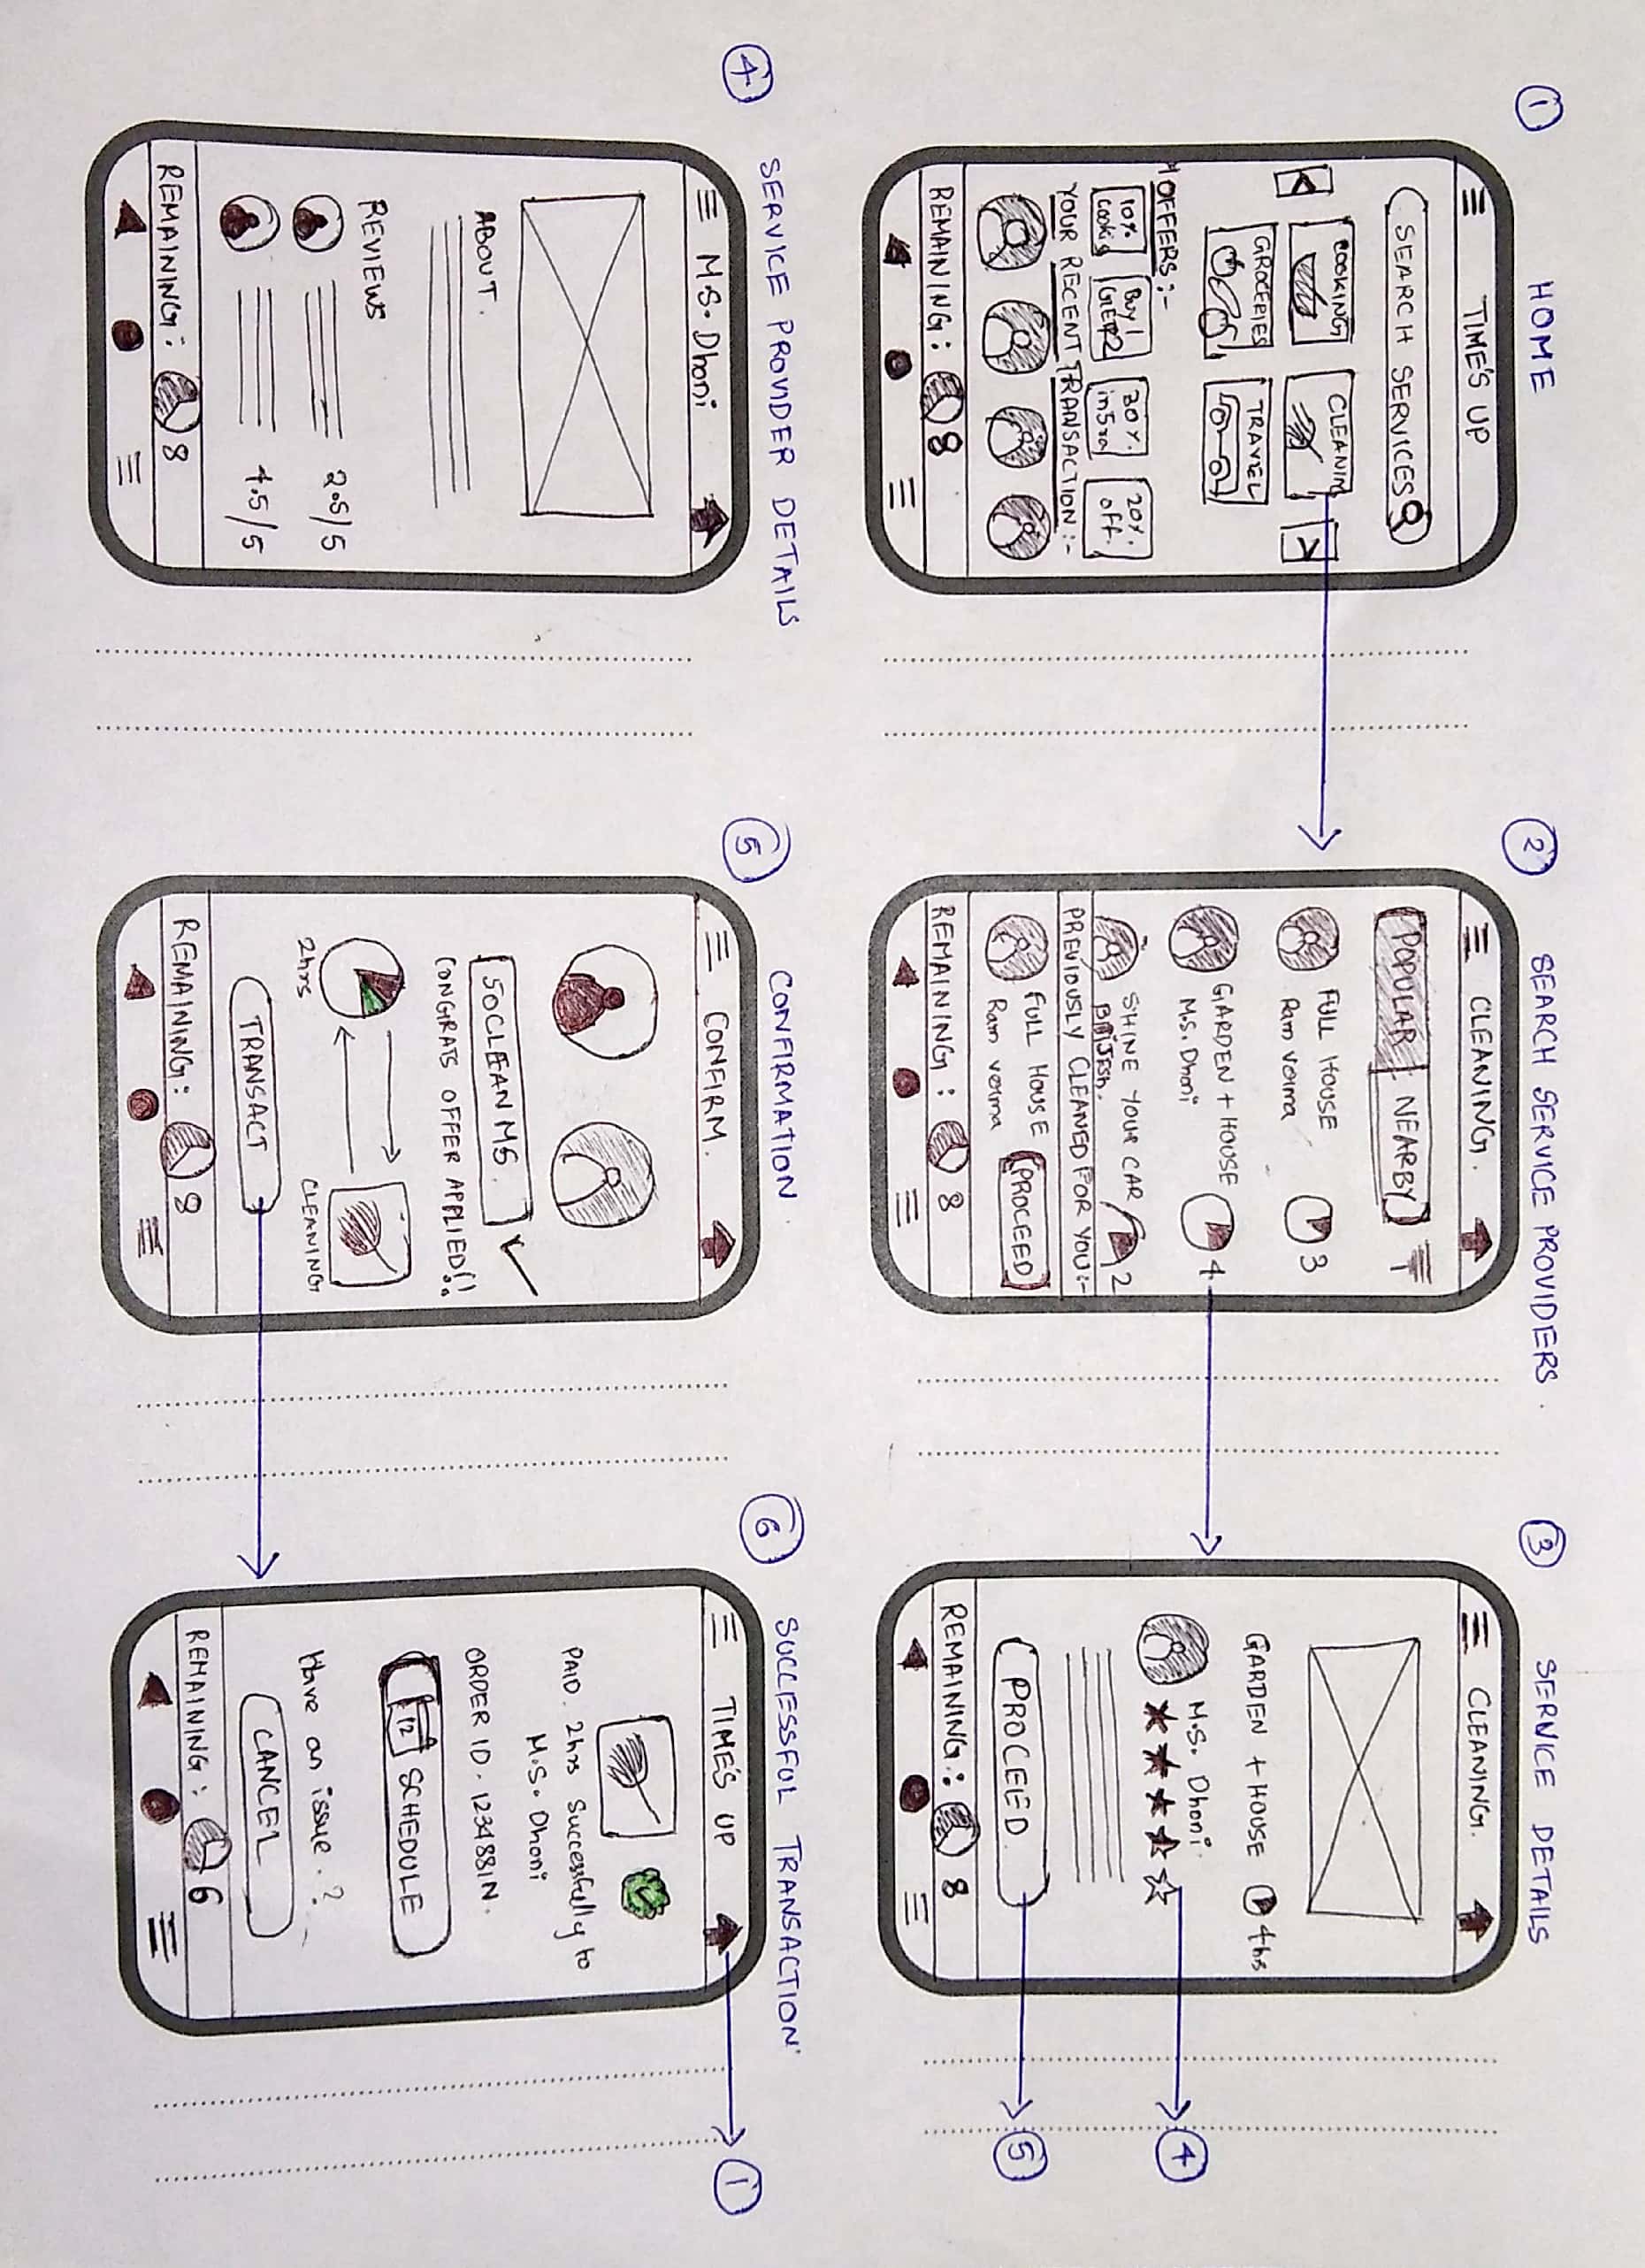 1 HOME
TIME'S UP
SEARCH SERVICES
COOKING CLEANIN
GROCERIES TRAVEL
OFFERS:-
10% Buy 1 30%. 20%.
GET 2 in 5 off.
YOUR RECENT TRANSACTION:-
REMAINING: 8
2 SEARCH SERVICE PROVIDERS.
CLEANING.
POPULAR NEARBY
FULL HOUSE 3
Ram verma
GARDEN + HOUSE 4
M.S. Dhoni
SHINE YOUR CAR 2
BRIJESH.
PREVIOUSLY CLEANED FOR YOU:-
FULL HOUSE
PROCEED
Ram verma
REMAINING: 8
3 SERVICE DETAILS
CLEANING.
GARDEN + HOUSE 4hrs
M.S. Dhoni
4
PROCEED
5
REMAINING: 8
4 SERVICE PROVIDER DETAILS
M.S. Dhoni
ABOUT.
REVIEWS
2.5/5
4.5/5
REMAINING: 8
5 CONFIRMATION
CONFIRM.
50CLEANMS.
CONGRATS OFFER APPLIED!!
2hrs CLEANING
TRANSACT
REMAINING: 8
6 SUCCESSFUL TRANSACTION
TIME'S UP
1
PAID. 2hrs Successfully to
M.S. Dhoni
ORDER ID. 1234881N.
12 SCHEDULE
Have an issue.?
CANCEL
REMAINING: 6